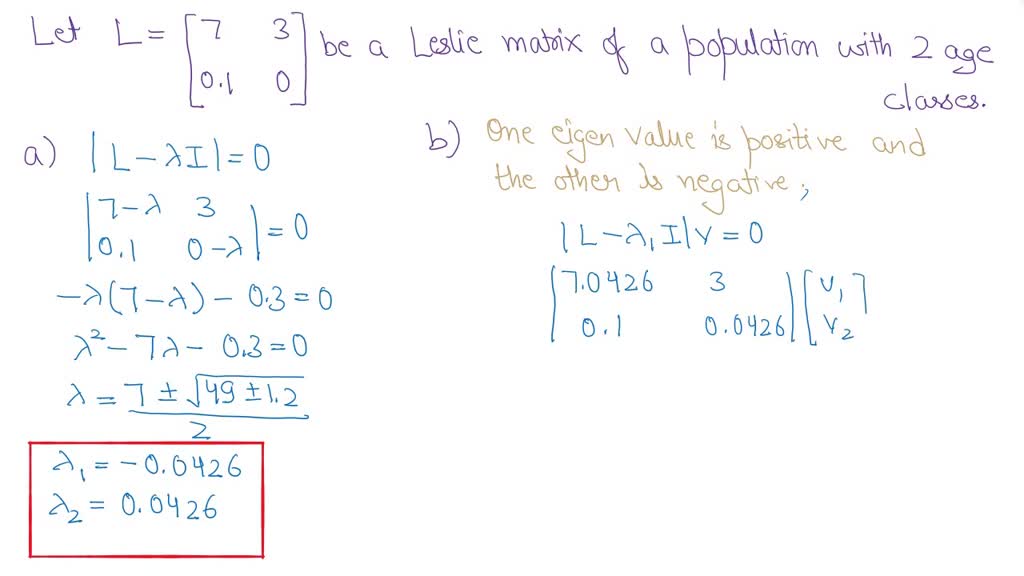 Let L = [7 3
0.1 0] be a Leslie matrix of a population with 2 age
classes.
a) |L - λI| = 0
|7-λ 3
0.1 0-λ| = 0
-λ(7-λ) - 0.3 = 0
λ² - 7λ - 0.3 = 0
λ = 7 ± √49 ± 1.2
2
λ₁ = -0.0426
λ₂ = 0.0426
b) One eigen value is positive and
the other is negative;
|L - λ₁I|v = 0
|7.0426 3
0.1 0.0426| [v₁
v₂]